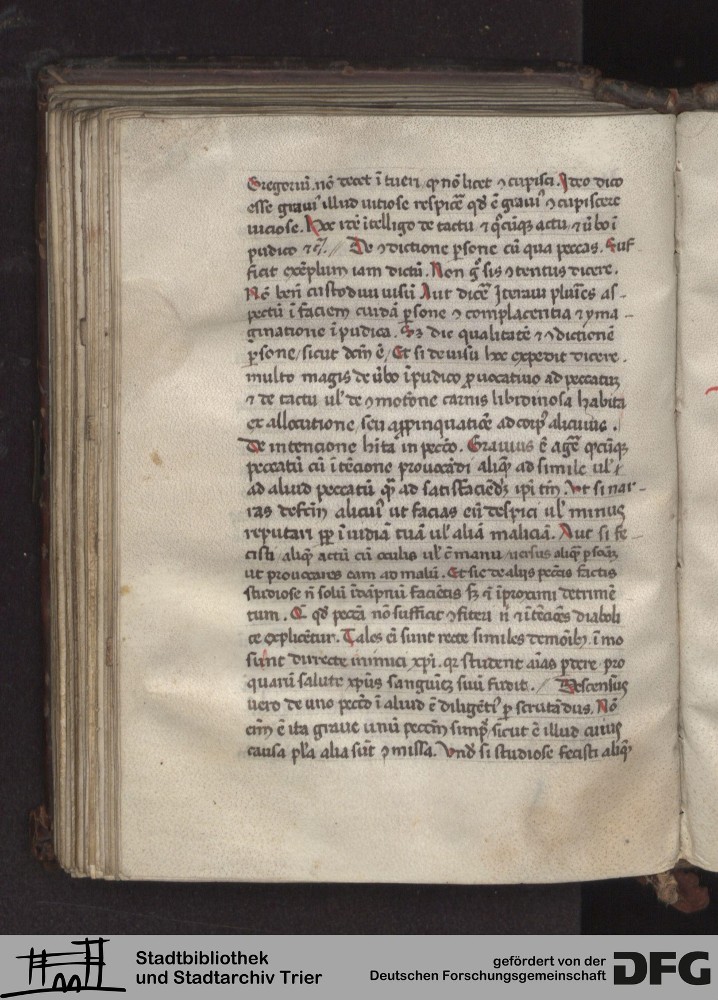 Gregoriū. nō decet ītueri, qͥ nō licet ꝯcupisci. Ideo dico
esse graviꝰ illud uitiose respicē̄ qd̄ ē graviꝰ ꝯcupiscere
uiciose. Hoc idē ītelligo de tactu ⁊ qͦcūqꝫ actu, ⁊ ūbo ī
pudico ⁊ cͣ. // De ꝯdictione ꝑsone cū qua peccas. Suf
ficit exēplum iam dictū. Non gͦ sis ꝯtentus dicere.
Nō benī custodiui uisū Aut dicē̄ Iteraui pluries as-
pectū ī faciem cuidā ꝑsone ꝯ complacentia ⁊ yma-
ginatione īpudica. Sꝫ dic qualitatē ⁊ ꝯdictionē
ꝑsone, sicut dcm̄ ē, Et si de uisu hoc expedit dicere.
multo magis de ūbo īpudico ꝓuocatiuo ad peccatuꝫ
⁊ de tactu ul' de ꝯmotone carnis libidinosa habita
ex allocutione, seu appinquatiōe ad corpꝰ alicuius.
De intencione hītā in pecc̄o. Grauius ē agē̄ qͦcūqꝫ
peccatū cū ītēcione prouocādi aliqͫ ad simile ul'
ad aliud peccatū qͣꝫ ad satisfaciēdꝫ ip̄i tm̄. Ut si nar-
ras defcm̄ alicuiꝰ ut facias eū despici ul' minus
reputari ꝓp̄ īuidiā tuā ul' aliā maliciā. Aut si fe-
cisti aliqͫ actū cū oculis ul' ē manu uersus aliqͣ ꝑsonā
ut prouocares eam ad malū. Et sic de aliis pecc̄is factis
studiose n̄ solū ī dāpnū faciētis sꝫ ⁊ īproximi detrimē
tum. Qꝫ qd̄ pecc̄a nō sufficit ꝯfiteri n̄ ⁊ ītēciōes diaboli
ce explicētur. Tales ēi sunt recte similes demoībꝫ. īmo
sūnt directe inimici xp̄i. qꝛ student aīas ꝑdere pro
quarū salute xp̄us sanguinē suū fudit. // Descensus
uero de uno pecc̄o ī aliud ē diligēt̄ ꝑscrutādus. Nō
eīm ē ita graue unū peccm̄ simpͬ, sicut ē illud cuius
causa pl̄a alia sūt ꝯmissa. Vnd̄ si studiose fecisti aliqͫ
Stadtbibliothek
und Stadtarchiv Trier
gefördert von der
Deutschen Forschungsgemeinschaft
DFG